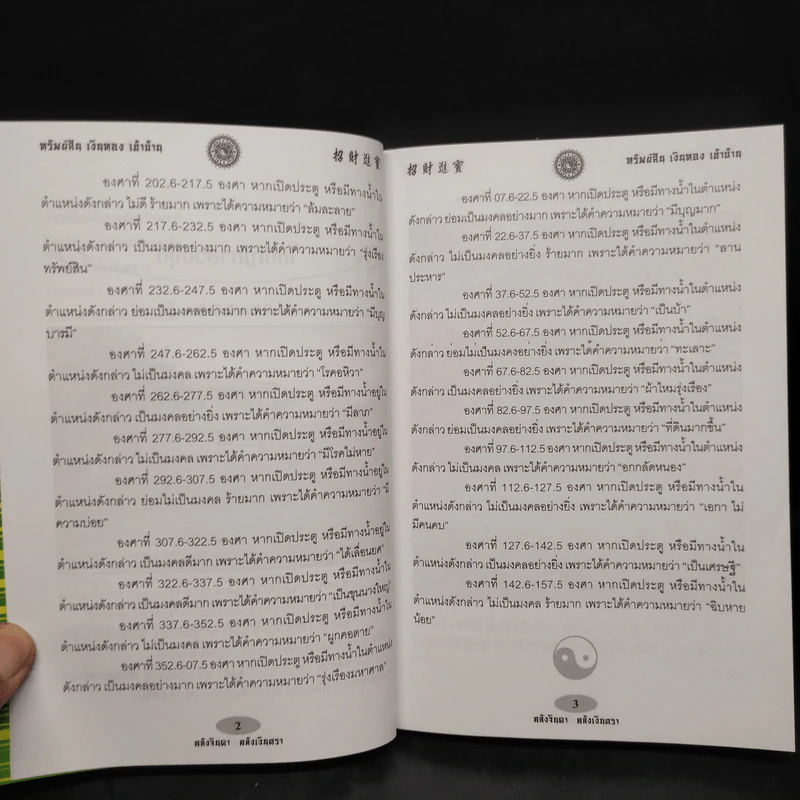 ทรัพย์สิน เงินทอง เข้าบ้าน
招財進寶
องศาที่ 202.6-217.5 องศา หากเปิดประตู หรือมีทางน้ำใน
ตำแหน่งดังกล่าว ไม่ดี ร้ายมาก เพราะได้คำความหมายว่า “ล้มละลาย”
องศาที่ 217.6-232.5 องศา หากเปิดประตู หรือมีทางน้ำใน
ตำแหน่งดังกล่าว เป็นมงคลอย่างมาก เพราะได้คำความหมายว่า “รุ่งเรือง
ทรัพย์สิน”
องศาที่ 232.6-247.5 องศา หากเปิดประตู หรือมีทางน้ำใน
ตำแหน่งดังกล่าว ย่อมเป็นมงคลอย่างมาก เพราะได้คำความหมายว่า “มีบุญ
บารมี”
องศาที่ 247.6-262.5 องศา หากเปิดประตู หรือมีทางน้ำใน
ตำแหน่งดังกล่าว ไม่เป็นมงคล เพราะได้คำความหมายว่า “โรคอหิวา”
องศาที่ 262.6-277.5 องศา หากเปิดประตู หรือมีทางน้ำอยู่ใน
ตำแหน่งดังกล่าว เป็นมงคลอย่างยิ่ง เพราะได้คำความหมายว่า “มีลาภ”
องศาที่ 277.6-292.5 องศา หากเปิดประตู หรือมีทางน้ำอยู่ใน
ตำแหน่งดังกล่าว ไม่เป็นมงคล เพราะได้คำความหมายว่า “มีโรคไม่หาย”
องศาที่ 292.6-307.5 องศา หากเปิดประตู หรือมีทางน้ำอยู่ใน
ตำแหน่งดังกล่าว ย่อมไม่เป็นมงคล ร้ายมาก เพราะได้คำความหมายว่า “มี
ความบ่อย”
องศาที่ 307.6-322.5 องศา หากเปิดประตู หรือมีทางน้ำอยู่ใน
ตำแหน่งดังกล่าว เป็นมงคลดีมาก เพราะได้คำความหมายว่า “ได้เลื่อนยศ”
องศาที่ 322.6-337.5 องศา หากเปิดประตู หรือมีทางน้ำใน
ตำแหน่งดังกล่าว เป็นมงคลดีมาก เพราะได้คำความหมายว่า “เป็นขุนนางใหญ่”
องศาที่ 337.6-352.5 องศา หากเปิดประตู หรือมีทางน้ำใน
ตำแหน่งดังกล่าว ไม่เป็นมงคล เพราะได้คำความหมายว่า “ผูกคอตาย”
องศาที่ 352.6-07.5 องศา หากเปิดประตู หรือมีทางน้ำในตำแหน่ง
ดังกล่าว เป็นมงคลอย่างมาก เพราะได้คำความหมายว่า “รุ่งเรืองมหาศาล”
2
พลังจินดา พลังเงินตรา
招財進寶
ทรัพย์สิน เงินทอง เข้าบ้าน
องศาที่ 07.6-22.5 องศา หากเปิดประตู หรือมีทางน้ำในตำแหน่ง
ดังกล่าว ย่อมเป็นมงคลอย่างมาก เพราะได้คำความหมายว่า “มีบุญมาก”
องศาที่ 22.6-37.5 องศา หากเปิดประตู หรือมีทางน้ำในตำแหน่ง
ดังกล่าว ไม่เป็นมงคลอย่างยิ่ง ร้ายมาก เพราะได้คำความหมายว่า “ลาน
ประหาร”
องศาที่ 37.6-52.5 องศา หากเปิดประตู หรือมีทางน้ำในตำแหน่ง
ดังกล่าว ไม่เป็นมงคลอย่างยิ่ง เพราะได้คำความหมายว่า “เป็นบ้า”
องศาที่ 52.6-67.5 องศา หากเปิดประตู หรือมีทางน้ำในตำแหน่ง
ดังกล่าว ย่อมไม่เป็นมงคงอย่างยิ่ง เพราะได้คำความหมายว่า “ทะเลาะ”
องศาที่ 67.6-82.5 องศา หากเปิดประตู หรือมีทางน้ำในตำแหน่ง
ดังกล่าว เป็นมงคลอย่างยิ่ง เพราะได้คำความหมายว่า “ผ้าไหมรุ่งเรือง”
องศาที่ 82.6-97.5 องศา หากเปิดประตู หรือมีทางน้ำในตำแหน่ง
ดังกล่าว ย่อมเป็นมงคลอย่างยิ่ง เพราะได้คำความหมายว่า “ที่ดินมากขึ้น”
องศาที่ 97.6-112.5 องศา หากเปิดประตู หรือมีทางน้ำในตำแหน่ง
ดังกล่าว ไม่เป็นมงคล เพราะได้คำความหมายว่า “อกกลัดหนอง”
องศาที่ 112.6-127.5 องศา หากเปิดประตู หรือมีทางน้ำใน
ตำแหน่งดังกล่าว ไม่เป็นมงคลอย่างยิ่ง เพราะได้คำความหมายว่า “เอกา ไม่
มีคนคบ”
องศาที่ 127.6-142.5 องศา หากเปิดประตู หรือมีทางน้ำใน
ตำแหน่งดังกล่าว เป็นมงคลอย่างยิ่ง เพราะได้คำความหมายว่า “เป็นเศรษฐี”
องศาที่ 142.6-157.5 องศา หากเปิดประตู หรือมีทางน้ำใน
ตำแหน่งดังกล่าว ไม่เป็นมงคล ร้ายมาก เพราะได้คำความหมายว่า “ฉิบหาย
น้อย”
3
พลังจินดา พลังเงินตรา